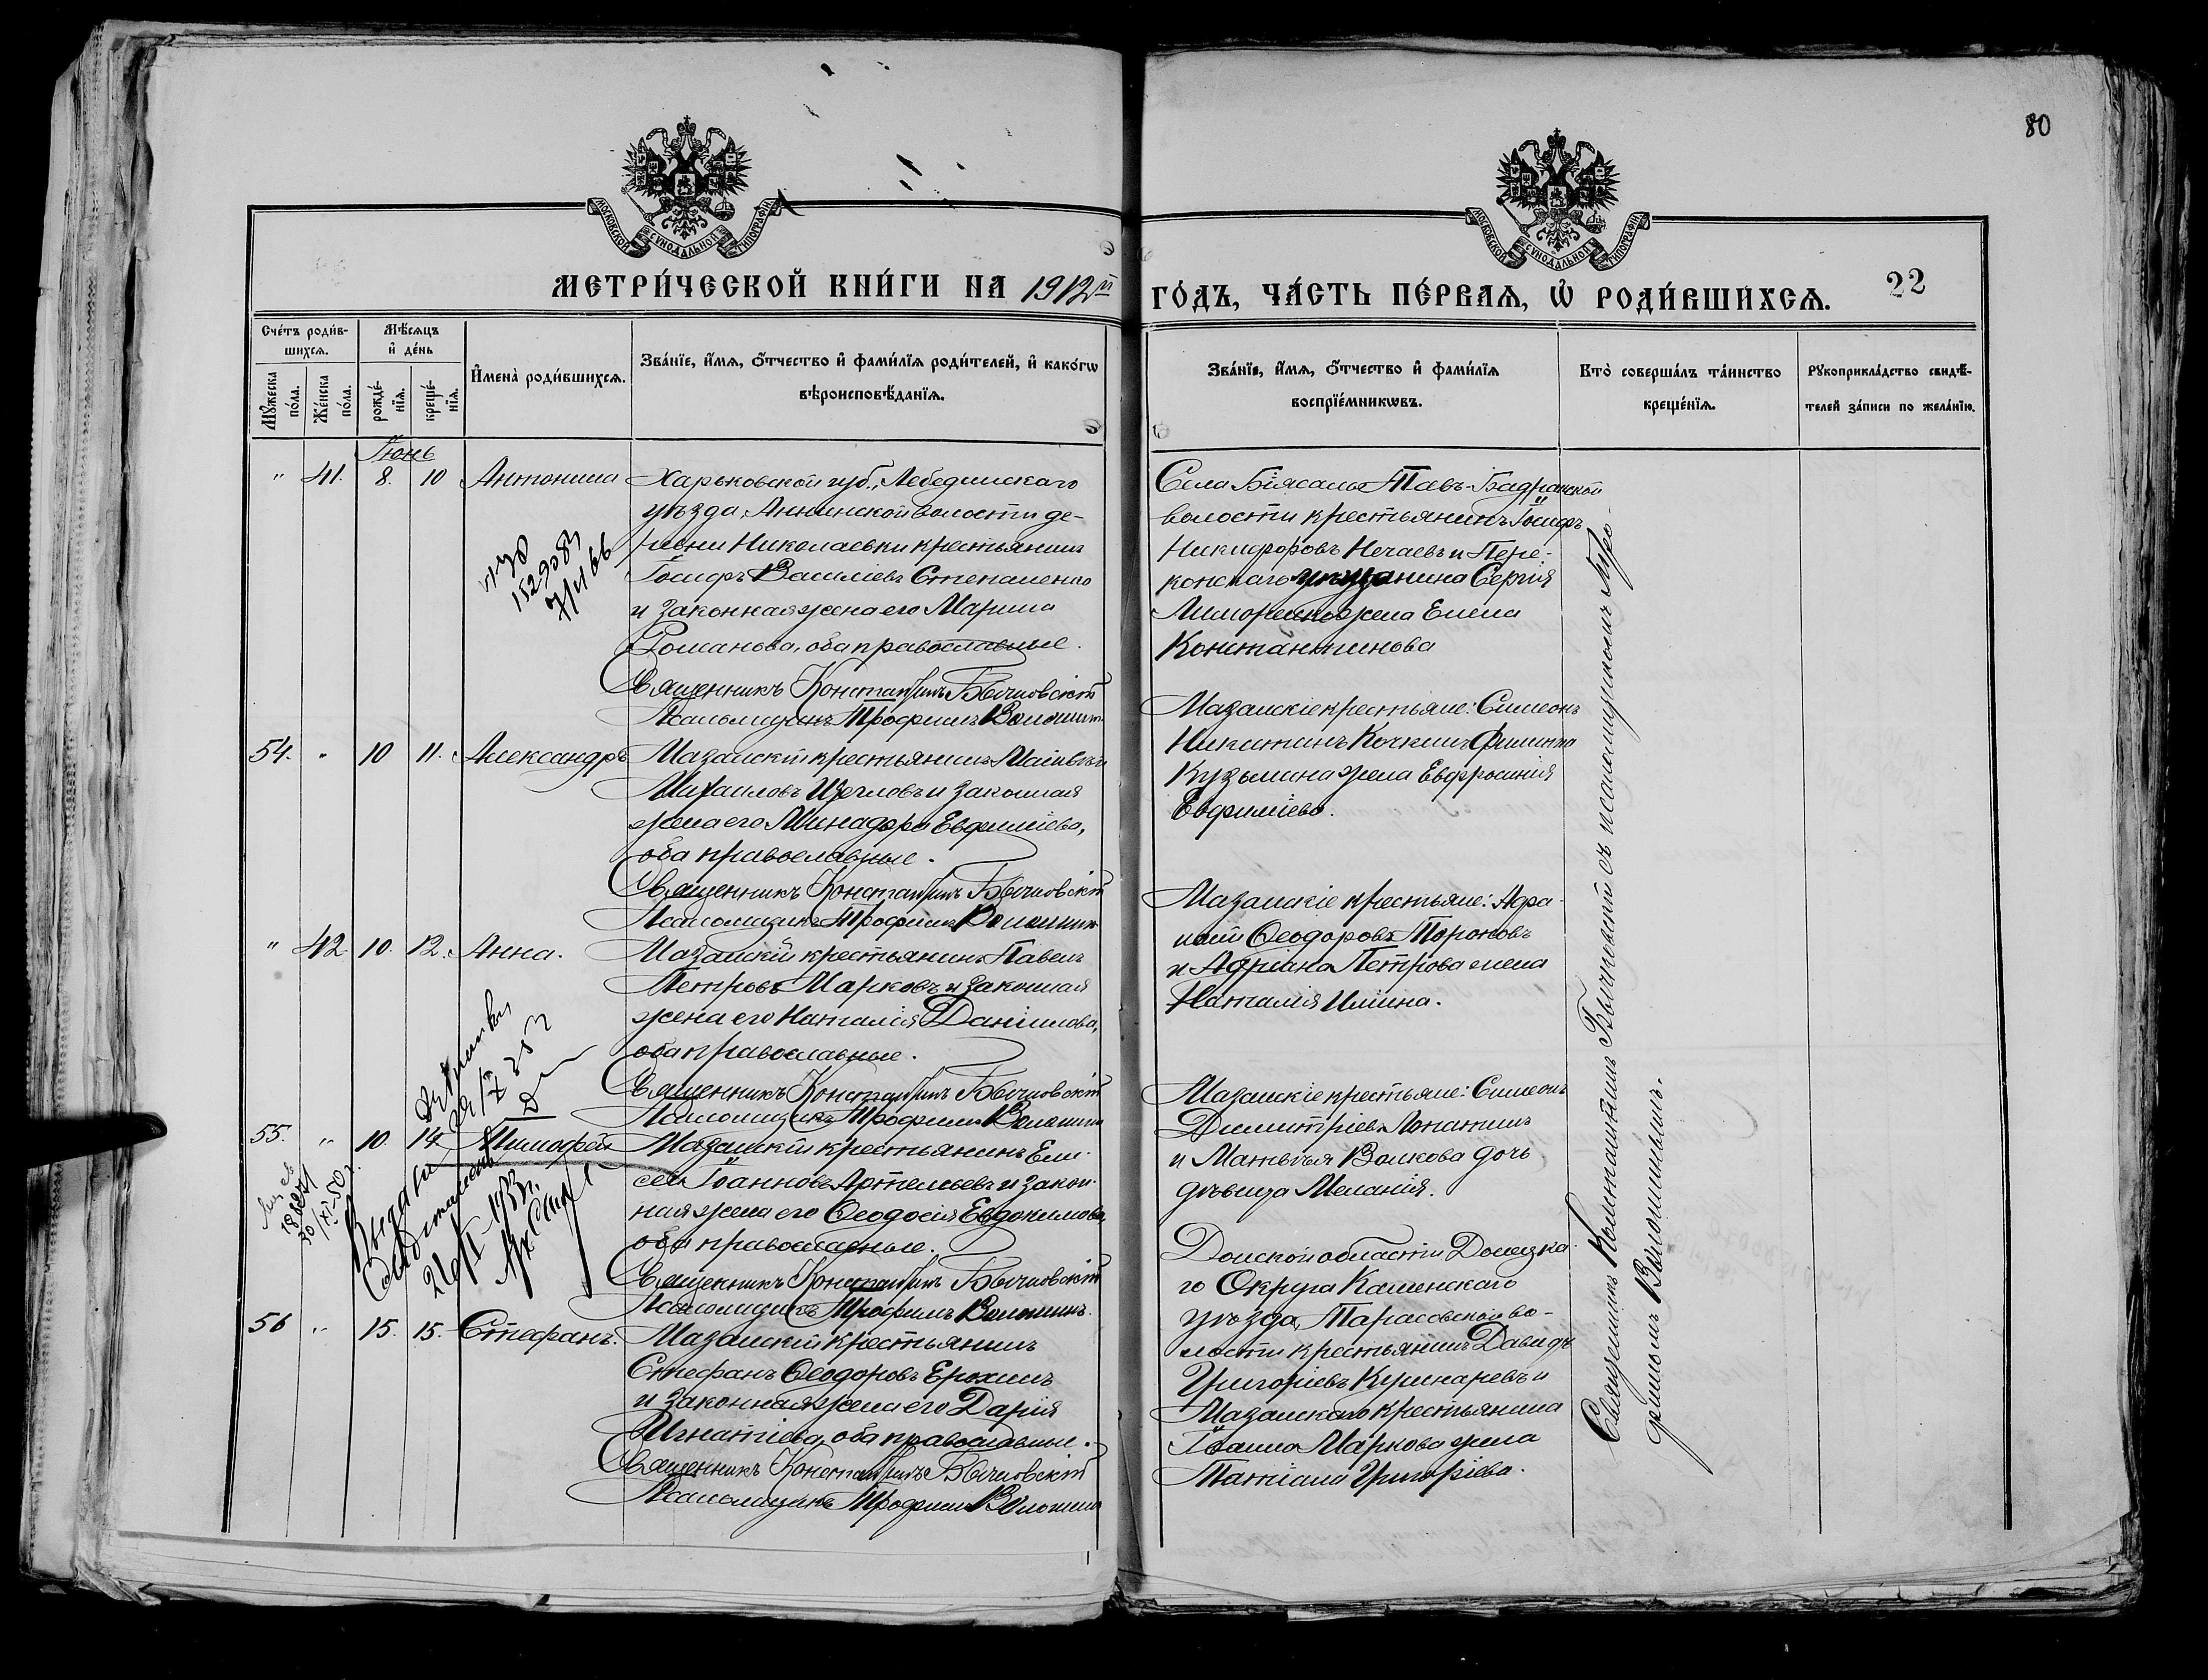 80
МОСКОВСКОЙ СѴНОДАЛЬНОЙ ТИПОГРАФІИ
МОСКОВСКОЙ СѴНОДАЛЬНОЙ ТИПОГРАФІИ
МЕТРИ́ЧЕСКОЙ КНИ́ГИ НА 1912й
ГО́ДЪ, ЧА́СТЬ ПЕ́РВАѦ, Ѽ РОДИ́ВШИХСѦ. 22
Сче́тъ роди́в-
шихсѧ.
Мѣ́сѧцъ
и҆ де́нь
Мꙋ́жеска по́ла.
Же́нска по́ла.
рожде́-
нїѧ.
креще́-
нїѧ.
И҆мена̀ роди́вшихсѧ.
Зва́нїе, и҆́мѧ, ѻ҆́тчество и҆ фами́лїѧ роди́телей, и҆ како́гѡ
вѣроисповѣ́данїѧ.
Зва́нїе, и҆́мѧ, ѻ҆́тчество и҆ фами́лїѧ
воспрїе́мникѡвъ.
Кто̀ соверша́лъ та́инство
креще́нїѧ.
Рꙋкоприкла́дство свидѣ́-
телей за́писи по жела́нїю.
Іюнь
" 41. 8. 10 Антонина
Харьковской губ., Лебединскаго
уѣзда, Аннинской волости де-
ревни Николаевки крестьянинъ
Іосифъ Василіевъ Степаненко
и законная жена его Марина
Романова, оба православные.
Священникъ Константинъ Бычковскій
Псаломщикъ Трофимъ Волошинъ
Села Біясала Тавъ-Бадракской
волости крестьянинъ Іосифъ
Никифоровъ Нечаевъ и Пере-
конскаго Сергія
жена Елена
Константинова
54. " 10 11. Александръ
Мазанскій крестьянинъ Матвѣй
Михаиловъ Щегловъ и законная
жена его Минадора Евфиміева,
оба православные.
Священникъ Константинъ Бычковскій
Псаломщикъ Трофимъ Волошинъ
Мазанскіе крестьяне: Симеонъ
Никитинъ Кочкинъ Филиппа
Кузьмина жена Евфросинія
Евфиміева.
" 42. 10. 12. Анна.
Мазанскій крестьянинъ Павелъ
Петровъ Марковъ и законная
жена его Наталія Даніилова,
оба православные.
Священникъ Константинъ Бычковскій
Псаломщикъ Трофимъ Волошинъ
Мазанскіе крестьяне: Афа-
насій Ѳеодоровъ Тороповъ
и Адріана Петрова жена
Наталія Ильина.
55. " 10. 14 Тимофей
Мазанскій крестьянинъ Ели-
сей Іоанновъ Артемьевъ и закон-
ная жена его Ѳеодосія Евдокимова
оба православные.
Священникъ Константинъ Бычковскій
Псаломщикъ Трофимъ Волошинъ.
Мазанскіе крестьяне: Симеонъ
Димитріевъ Лопатинъ
и Матвѣя Волкова дочь
дѣвица Меланія.
56 " 15. 15. Стефанъ.
Мазанскій крестьянинъ
Стефанъ Ѳеодоровъ Ерохинъ
и законная жена его Дарія
Игнатіева, оба православные.
Священникъ Константинъ Бычковскій
Псаломщикъ Трофимъ Волошинъ
Донской области Донецка-
го Округа Каменскаго
уѣзда, Тарасовской во-
лости крестьянинъ Давидъ
Григоріевъ Кушнаревъ и
Мазанскаго крестьянина
Іоанна Маркова жена
Татіана Григоріева.
Священникъ Константинъ Бычковскій съ псаломщикомъ Тро-
фимомъ Волошинымъ.